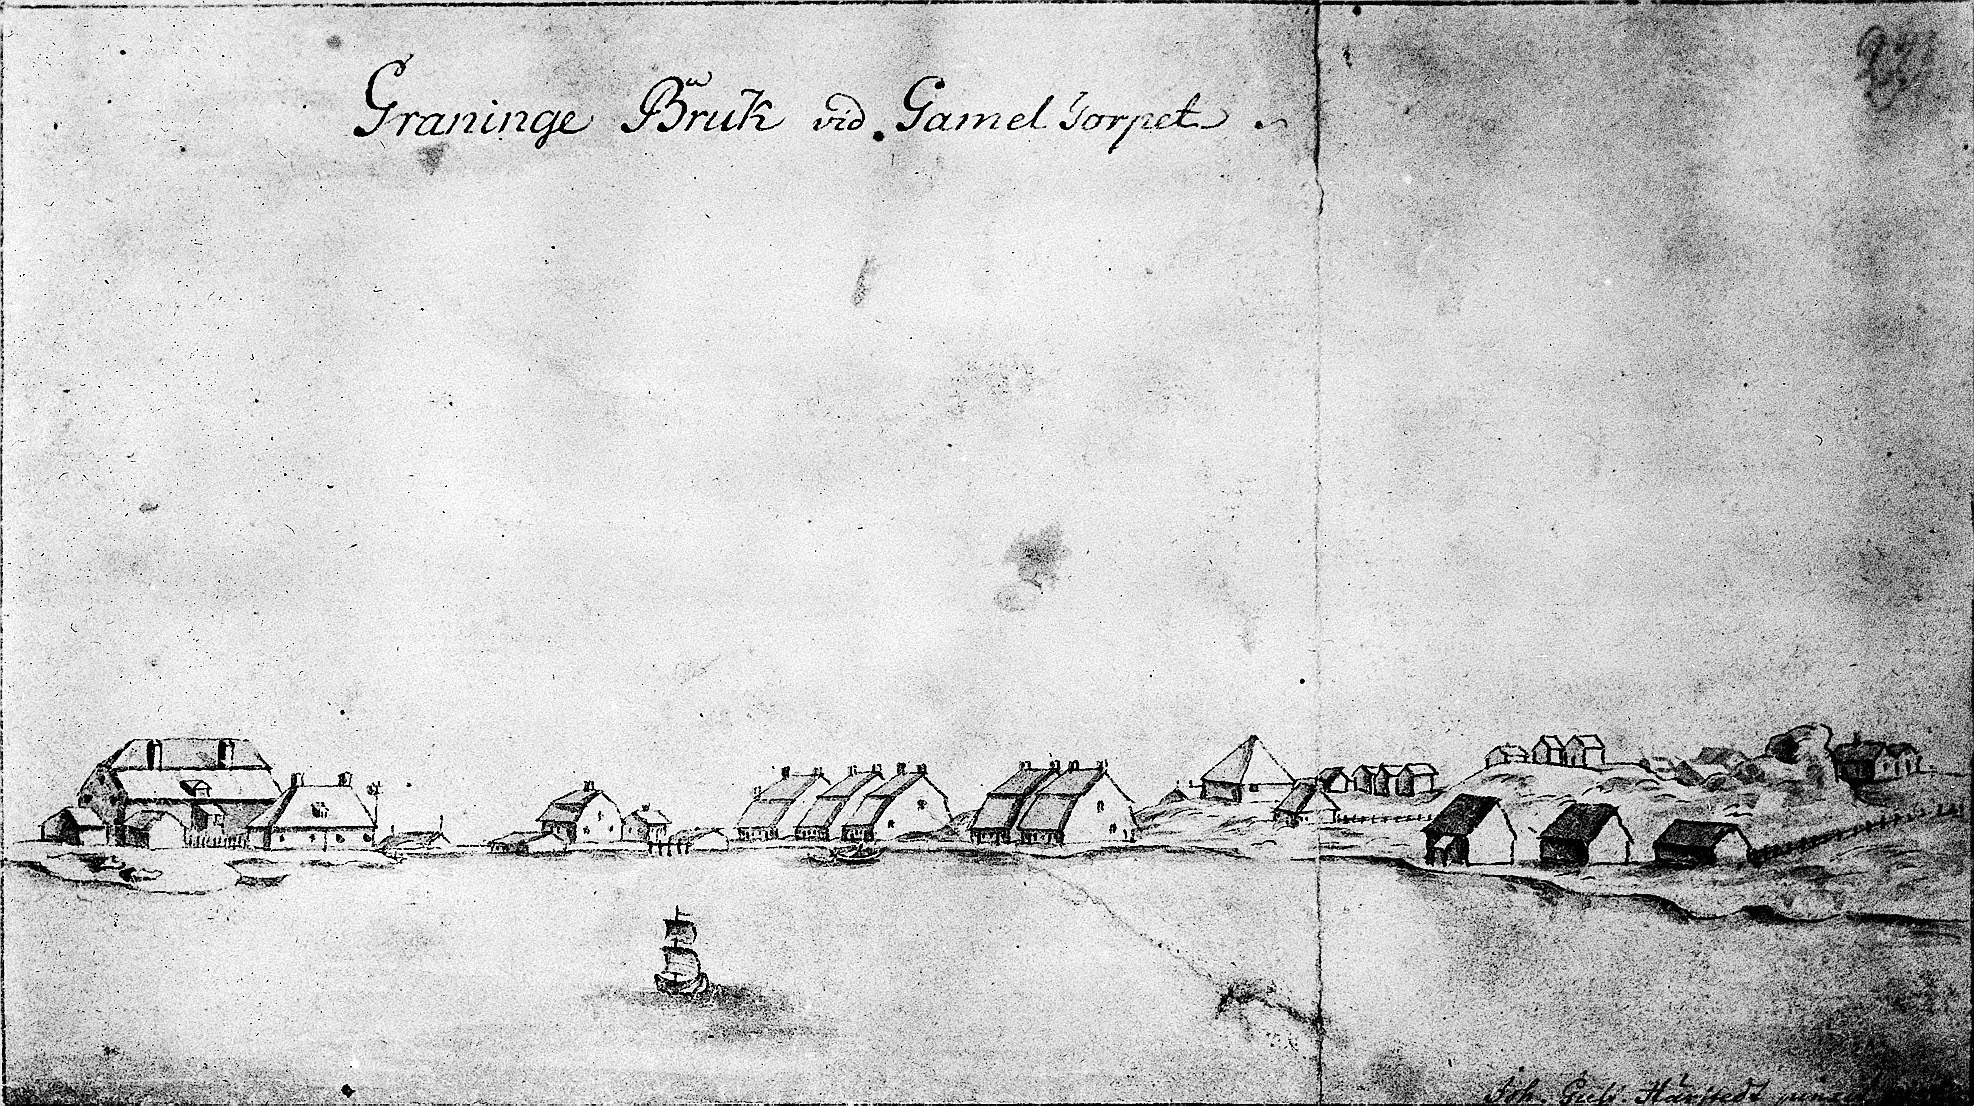 Graninge Bruk vid Gamel Torpet
Joh. Gust. Härstedt